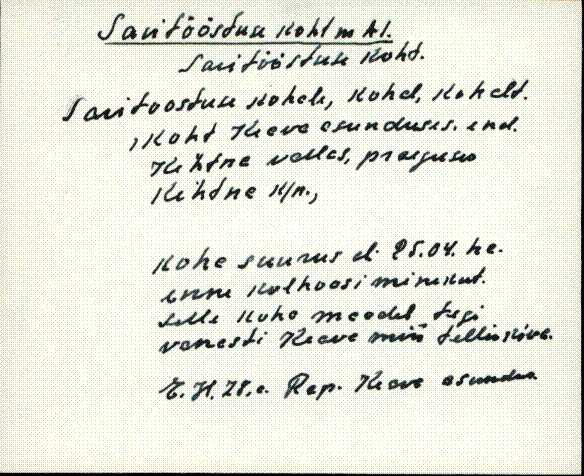 Savitööstuse koht m A1.
Savitööstuse koht.
Savitööstuse kohale, kohal, kohalt.
, koht Keava asunduses. end.
Kehtna vallas, praeguse
Kehtna k/n.,
koha suurus oli 25.04. ha.
enne kolhoosi minekut.
selle koha maadel tegi
vanasti Keava mõis telliskive.
E. H. 78.a. Rap. Keava asundus